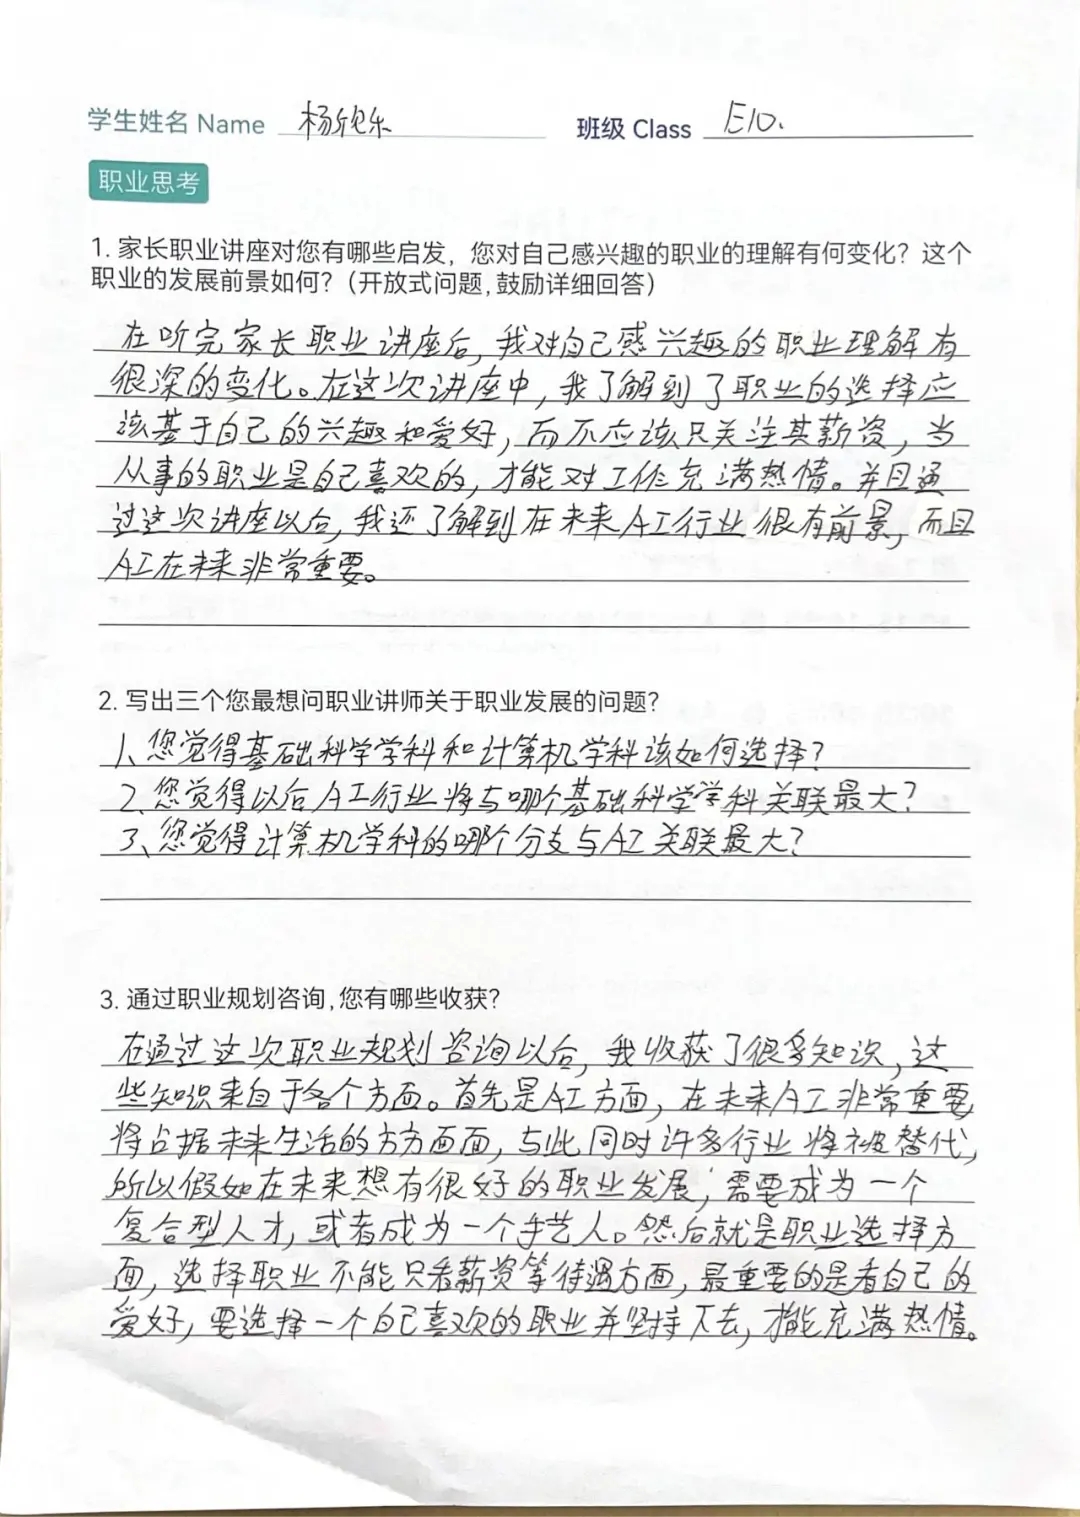 学生姓名 Name 杨欣乐 班级 Class E10.
职业思考
1. 家长职业讲座对您有哪些启发，您对自己感兴趣的职业的理解有何变化？这个
职业的发展前景如何？（开放式问题，鼓励详细回答）
在听完家长职业讲座后，我对自己感兴趣的职业理解有
很深的变化。在这次讲座中，我了解到了职业的选择应
该基于自己的兴趣和爱好，而不应该只关注其薪资，当
从事的职业是自己喜欢的，才能对工作充满热情。并且通
过这次讲座以后，我还了解到在未来AI行业很有前景，而且
AI在未来非常重要。
2. 写出三个您最想问职业讲师关于职业发展的问题？
1、您觉得基础科学学科和计算机学科该如何选择？
2、您觉得以后AI行业将与哪个基础科学学科关联最大？
3、您觉得计算机学科的哪个分支与AI关联最大？
3. 通过职业规划咨询，您有哪些收获？
在通过这次职业规划咨询以后，我收获了很多知识，这
些知识来自于各个方面。首先是AI方面，在未来AI非常重要
将占据未来生活的方方面面，与此同时许多行业将被替代，
所以假如在未来想有很好的职业发展，需要成为一个
复合型人才，或者成为一个手艺人。然后就是职业选择方
面，选择职业不能只看薪资等待遇方面，最重要的是看自己的
爱好，要选择一个自己喜欢的职业并坚持下去，才能充满热情。